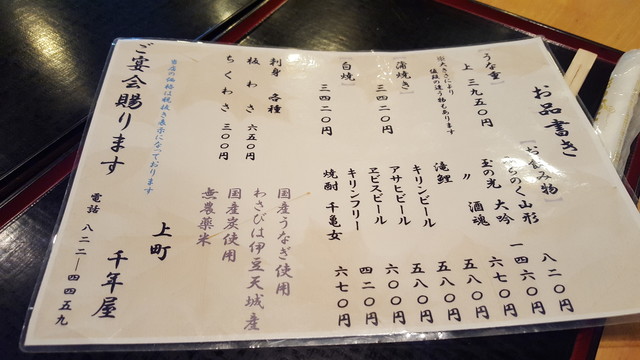 お品書き
うな重
上 三九五〇円
※大きさにより
値段の違う物もあります
蒲焼き
三四二〇円
白焼
三四二〇円
刺身 各種
板わさ 六五〇円
ちくわさ 三〇〇円
お飲み物
みちのく山形 八二〇円
玉の光 大吟 一四六〇円
〃 酒魂 六七〇円
滝鯉 五八〇円
キリンビール 五八〇円
アサヒビール 五八〇円
ヱビスビール 六〇〇円
キリンフリー 四二〇円
焼酎 千亀女 六七〇円
国産うなぎ使用
わさびは伊豆天城産
国産炭使用
無農薬米
当店の価格は税抜き表示になっております
ご宴会賜ります
上町
千年屋
電話 八二二―四四五九